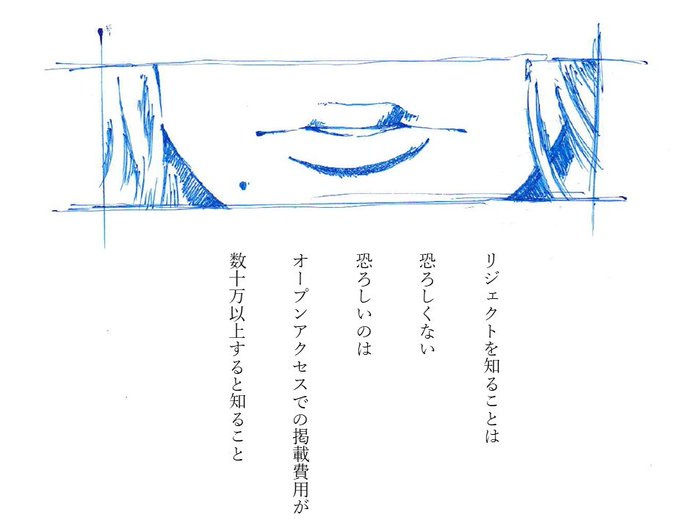 リジェクトを知ることは
恐ろしくない
恐ろしいのは
オープンアクセスでの掲載費用が
数十万以上すると知ること